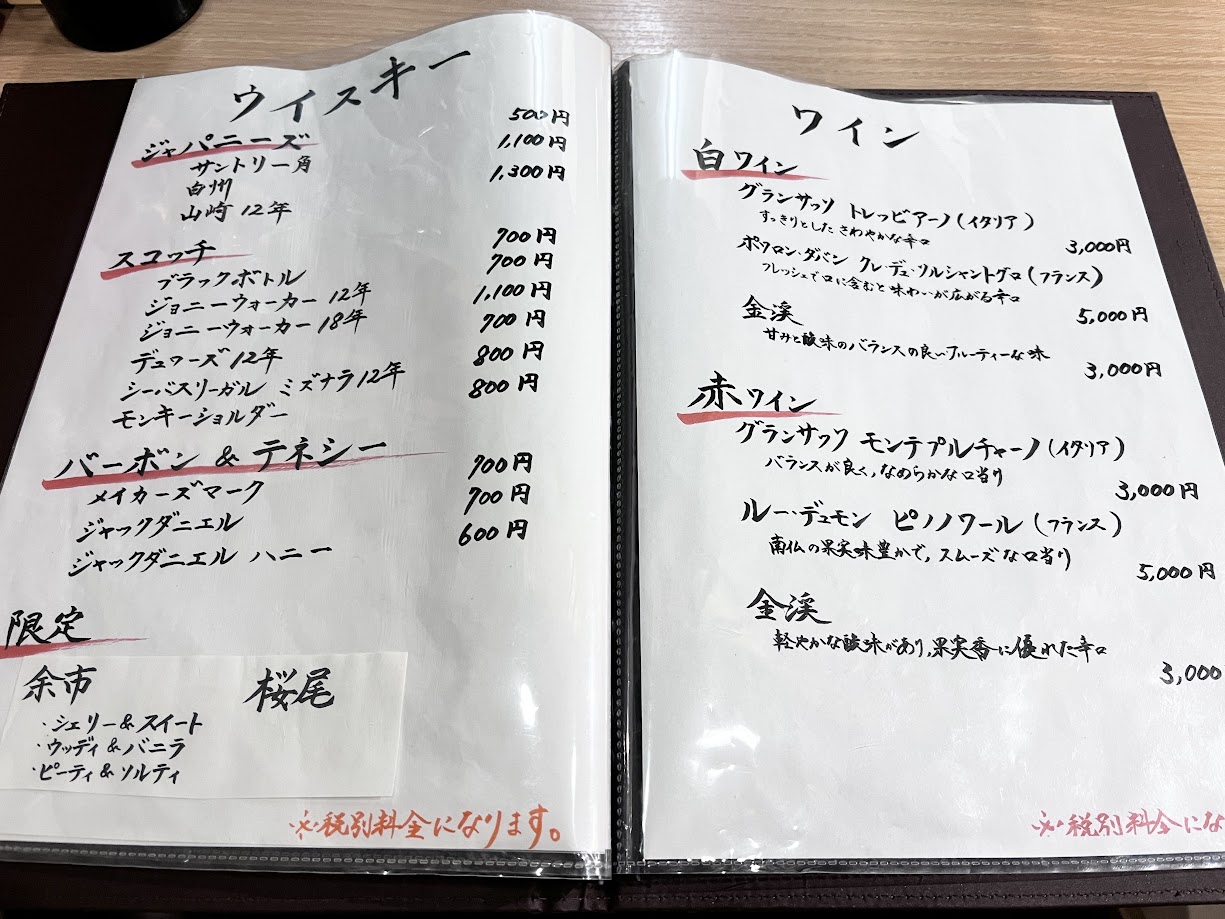 ウイスキー
ジャパニーズ
サントリー角 500円
白州 1,100円
山崎 12年 1,300円
スコッチ
ブラックボトル 700円
ジョニーウォーカー 12年 700円
ジョニーウォーカー 18年 1,100円
デュワーズ 12年 700円
シーバスリーガル ミズナラ 12年 800円
モンキーショルダー 800円
バーボン & テネシー
メイカーズマーク 700円
ジャックダニエル 700円
ジャックダニエル ハニー 600円
限定
余市 桜尾
・シェリー&スイート
・ウッディ&バニラ
・ピーティ&ソルティ
※税別料金になります。
ワイン
白ワイン
グランサッソ トレッビアーノ(イタリア)
すっきりとした さわやかな辛口
3,000円
ポクロン・ダバン クレ・デュ・ソルシャントグロ(フランス)
フレッシュで口に含むと味わいが広がる辛口
5,000円
金渓
甘みと酸味のバランスの良いフルーティーな味
3,000円
赤ワイン
グランサッソ モンテプルチャーノ(イタリア)
バランスが良く,なめらかな口当り
3,000円
ルー・デュモン ピノノワール(フランス)
南仏の果実味豊かで,スムーズな口当り
5,000円
金渓
軽やかな酸味があり,果実香に優れた辛口
3,000
※税別料金にな